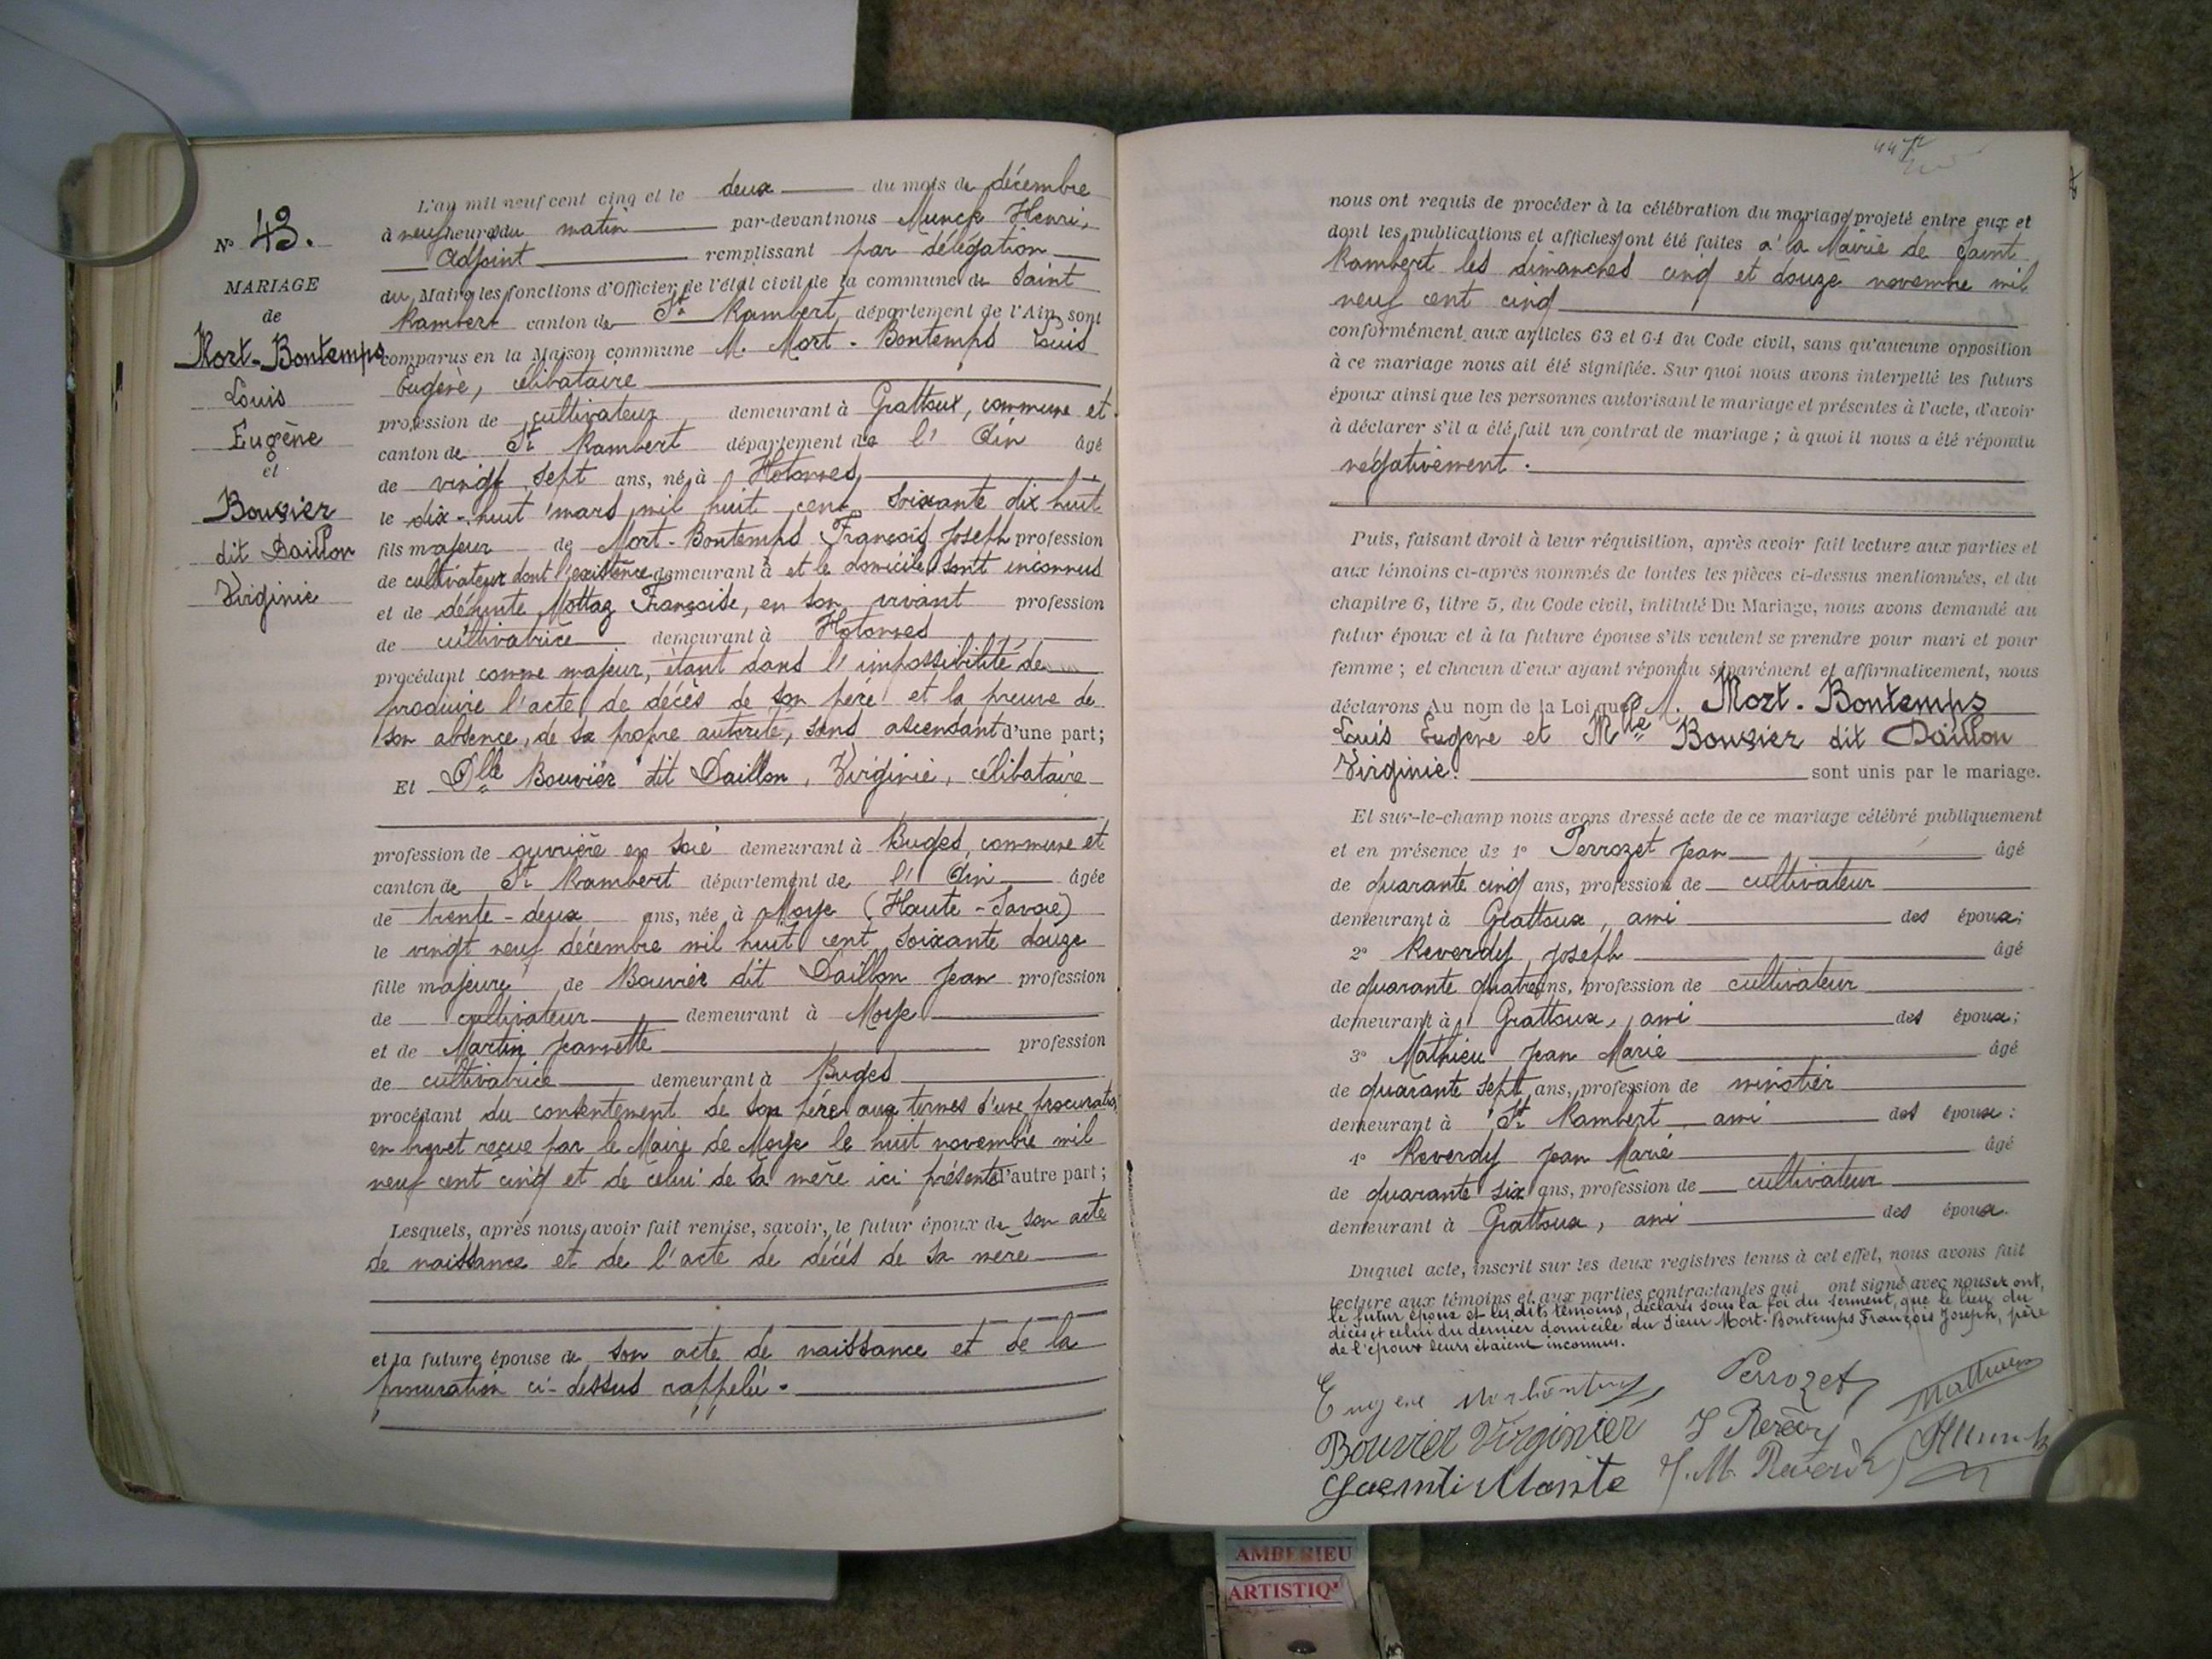 N° 43.
MARIAGE
de
Mort-Bontemps
Louis
Eugène
et
Bouvier
dit Daillon
Virginie
L'an mil neuf cent cinq et le deux du mois de décembre
à neuf heures du matin par-devant nous Munck Henri,
Adjoint remplissant par délégation
du Maire les fonctions d'Officier de l'état civil de la commune de Saint
Rambert canton de St Rambert, département de l'Ain, sont
comparus en la Maison commune M. Mort-Bontemps Louis
Eugène, célibataire
profession de cultivateur, demeurant à Grattoux, commune et
canton de St Rambert département de l'Ain âgé
de vingt sept ans, né à Hotonnes,
le dix-huit mars mil huit cent soixante dix huit
fils majeur de Mort-Bontemps François Joseph profession
de cultivateur dont l'existence demeurant à et le domicile sont inconnus
et de défunte Mottaz Françoise, en son vivant profession
de cultivatrice demeurant à Hotonnes
procédant comme majeur, étant dans l'impossibilité de
produire l'acte de décès de son père et la preuve de
son absence, de sa propre autorité, sans ascendant d'une part;
Et Dlle Bouvier dit Daillon, Virginie, célibataire
profession de ouvrière en soie demeurant à Buges, commune et
canton de St Rambert département de l'Ain âgée
de trente-deux ans, née à Moye (Haute-Savoie)
le vingt neuf décembre mil huit cent soixante douze
fille majeure de Bouvier dit Daillon Jean profession
de cultivateur demeurant à Moye
et de Martin Jeannette profession
de cultivatrice demeurant à Buges
procédant du consentement de son père aux termes d'une procuration
en brevet reçue par le Maire de Moye le huit novembre mil
neuf cent cinq et de celui de sa mère ici présente d'autre part;
Lesquels, après nous avoir fait remise, savoir, le futur époux de son acte
de naissance et de l'acte de décès de sa mère
et la future épouse de son acte de naissance et de la
procuration ci-dessus rappelée.
44
nous ont requis de procéder à la célébration du mariage projeté entre eux et
dont les publications et affiches ont été faites à la Mairie de Saint
Rambert les dimanches cinq et douze novembre mil
neuf cent cinq
conformément aux articles 63 et 64 du Code civil, sans qu'aucune opposition
à ce mariage nous ait été signifiée. Sur quoi nous avons interpellé les futurs
époux ainsi que les personnes autorisant le mariage et présentes à l'acte, d'avoir
à déclarer s'il a été fait un contrat de mariage; à quoi il nous a été répondu
négativement.
Puis, faisant droit à leur réquisition, après avoir fait lecture aux parties et
aux témoins ci-après nommés de toutes les pièces ci-dessus mentionnées, et du
chapitre 6, titre 5, du Code civil, intitulé Du Mariage, nous avons demandé au
futur époux et à la future épouse s'ils veulent se prendre pour mari et pour
femme; et chacun d'eux ayant répondu séparément et affirmativement, nous
déclarons Au nom de la Loi que M. Mort-Bontemps
Louis Eugène et Mlle Bouvier dit Daillon
Virginie. sont unis par le mariage.
Et sur-le-champ nous avons dressé acte de ce mariage célébré publiquement
et en présence de 1° Perrozet Jean âgé
de quarante cinq ans, profession de cultivateur
demeurant à Grattoux, ami des époux;
2° Reverdy Joseph âgé
de quarante quatre ans, profession de cultivateur
demeurant à Grattoux, ami des époux;
3° Mathieu Jean Marie âgé
de quarante sept ans, profession de minotier
demeurant à St Rambert ami des époux:
4° Reverdy Jean Marie âgé
de quarante six ans, profession de cultivateur
demeurant à Grattoux, ami des époux.
Duquel acte, inscrit sur les deux registres tenus à cet effet, nous avons fait
lecture aux témoins et aux parties contractantes qui ont signé avec nous et ont,
le futur époux et les dits témoins, déclarés sous la foi du serment, que le lieu du
décès et celui du dernier domicile du sieur Mort-Bontemps François Joseph, père
de l'époux leurs étaient inconnus.
Eugene Perrozet Mathieu
Bouvier Virginier J Reverdy HMunck
J. M. Reverdy
AMBERIEU
ARTISTIQ'